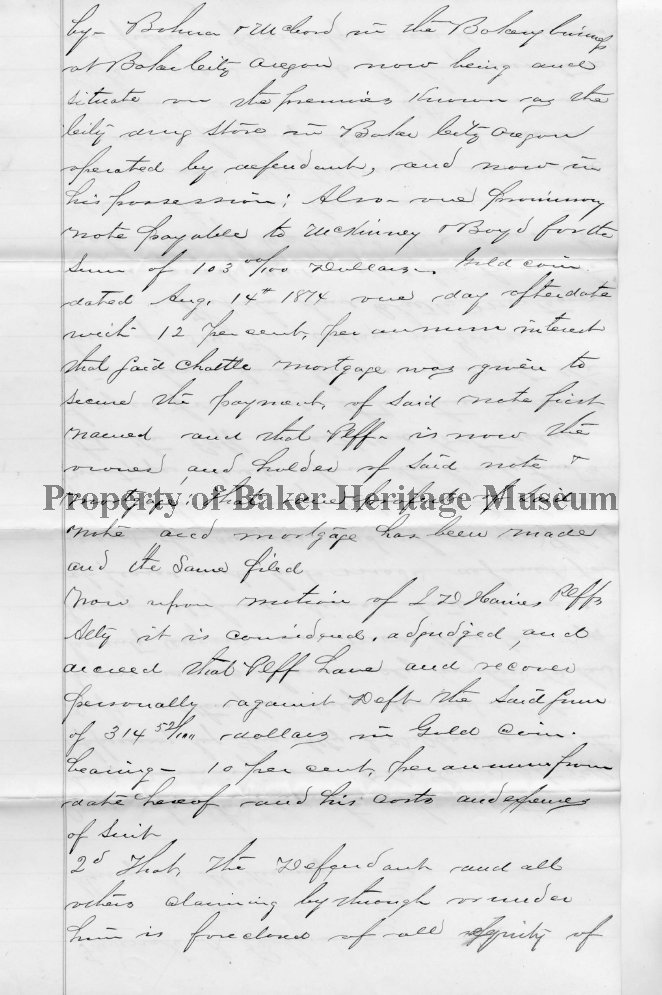 by Bohna & McCord in the Bakery business
at Baker City Oregon now being and
situate on the premises known as the
City drug store in Baker City Oregon
operated by defendant, and now in
his possession; Also one promissory
note payable to McKinney & Boyd for the
Sum of 103 00/100 Dollars Gold coin
dated Aug. 14th 1874 one day after date
with 12 per cent, per annum interest
that said Chattle mortgage was given to
secure the payment, of said note first
named and that Plff is now the
owner, and holder of said note &
mortgage that of said
Property of Baker Heritage Museum
note and mortgage has been made
and the same filed
Now upon motion of I D Haines Plffs
Atty it is considered, adjudged, and
decreed that Plff have and recover
personally against Deft the said sum
of 314 52/100 dollars in Gold Coin.
bearing 10 per cent, per annum from
date hereof and his costs and expenses
of Suit
2d That, the Defendant and all
others claiming by through or under
him is foreclosed of all equity of